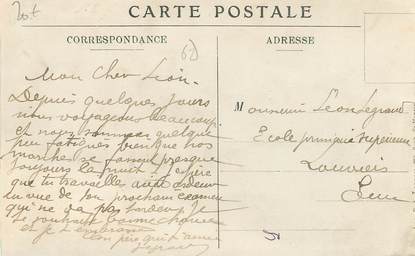 CARTE POSTALE
CORRESPONDANCE
ADRESSE
Mon Cher Léon.
Depuis quelques jours
nous voyageons beaucoup
et nous sommes quelque
peu fatigués bien que nos
marches se fassent presque
toujours la nuit. J'espère
que tu travailles avec ardeur
en vue de ton prochain examen
qui ne va pas tarder. Je
te souhaite bonne chance
et je t'embrasse
Ton père qui t'aime
Legrand
Monsieur Léon Legrand
Ecole primaire supérieure
Louviers
Eure